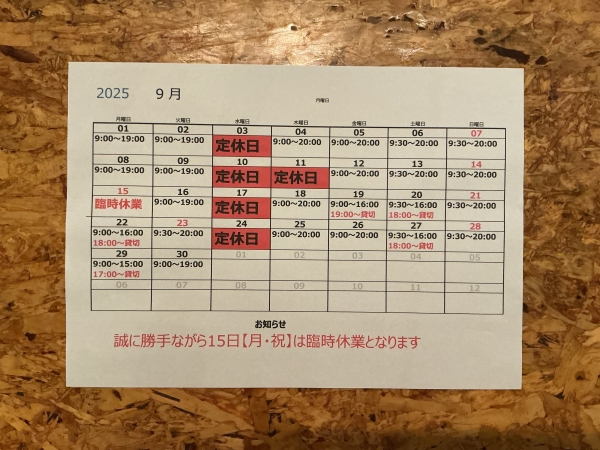 2025 9月
月曜日
月曜日 火曜日 水曜日 木曜日 金曜日 土曜日 日曜日
01 02 03 04 05 06 07
9:00~19:00 9:00~19:00 定休日 9:00~20:00 9:00~20:00 9:30~20:00 9:30~20:00
08 09 10 11 12 13 14
9:00~19:00 9:00~19:00 定休日 定休日 9:00~20:00 9:30~20:00 9:30~20:00
15 16 17 18 19 20 21
臨時休業 9:00~19:00 定休日 9:00~20:00 9:00~16:00 9:30~16:00 9:30~20:00
19:00~貸切 18:00~貸切
22 23 24 25 26 27 28
9:00~16:00 9:30~20:00 定休日 9:00~20:00 9:00~20:00 9:30~16:00 9:30~20:00
18:00~貸切 18:00~貸切
29 30 01 02 03 04 05
9:00~15:00 9:00~19:00
17:00~貸切
06 07 08 09 10 11 12
お知らせ
誠に勝手ながら15日【月・祝】は臨時休業となります